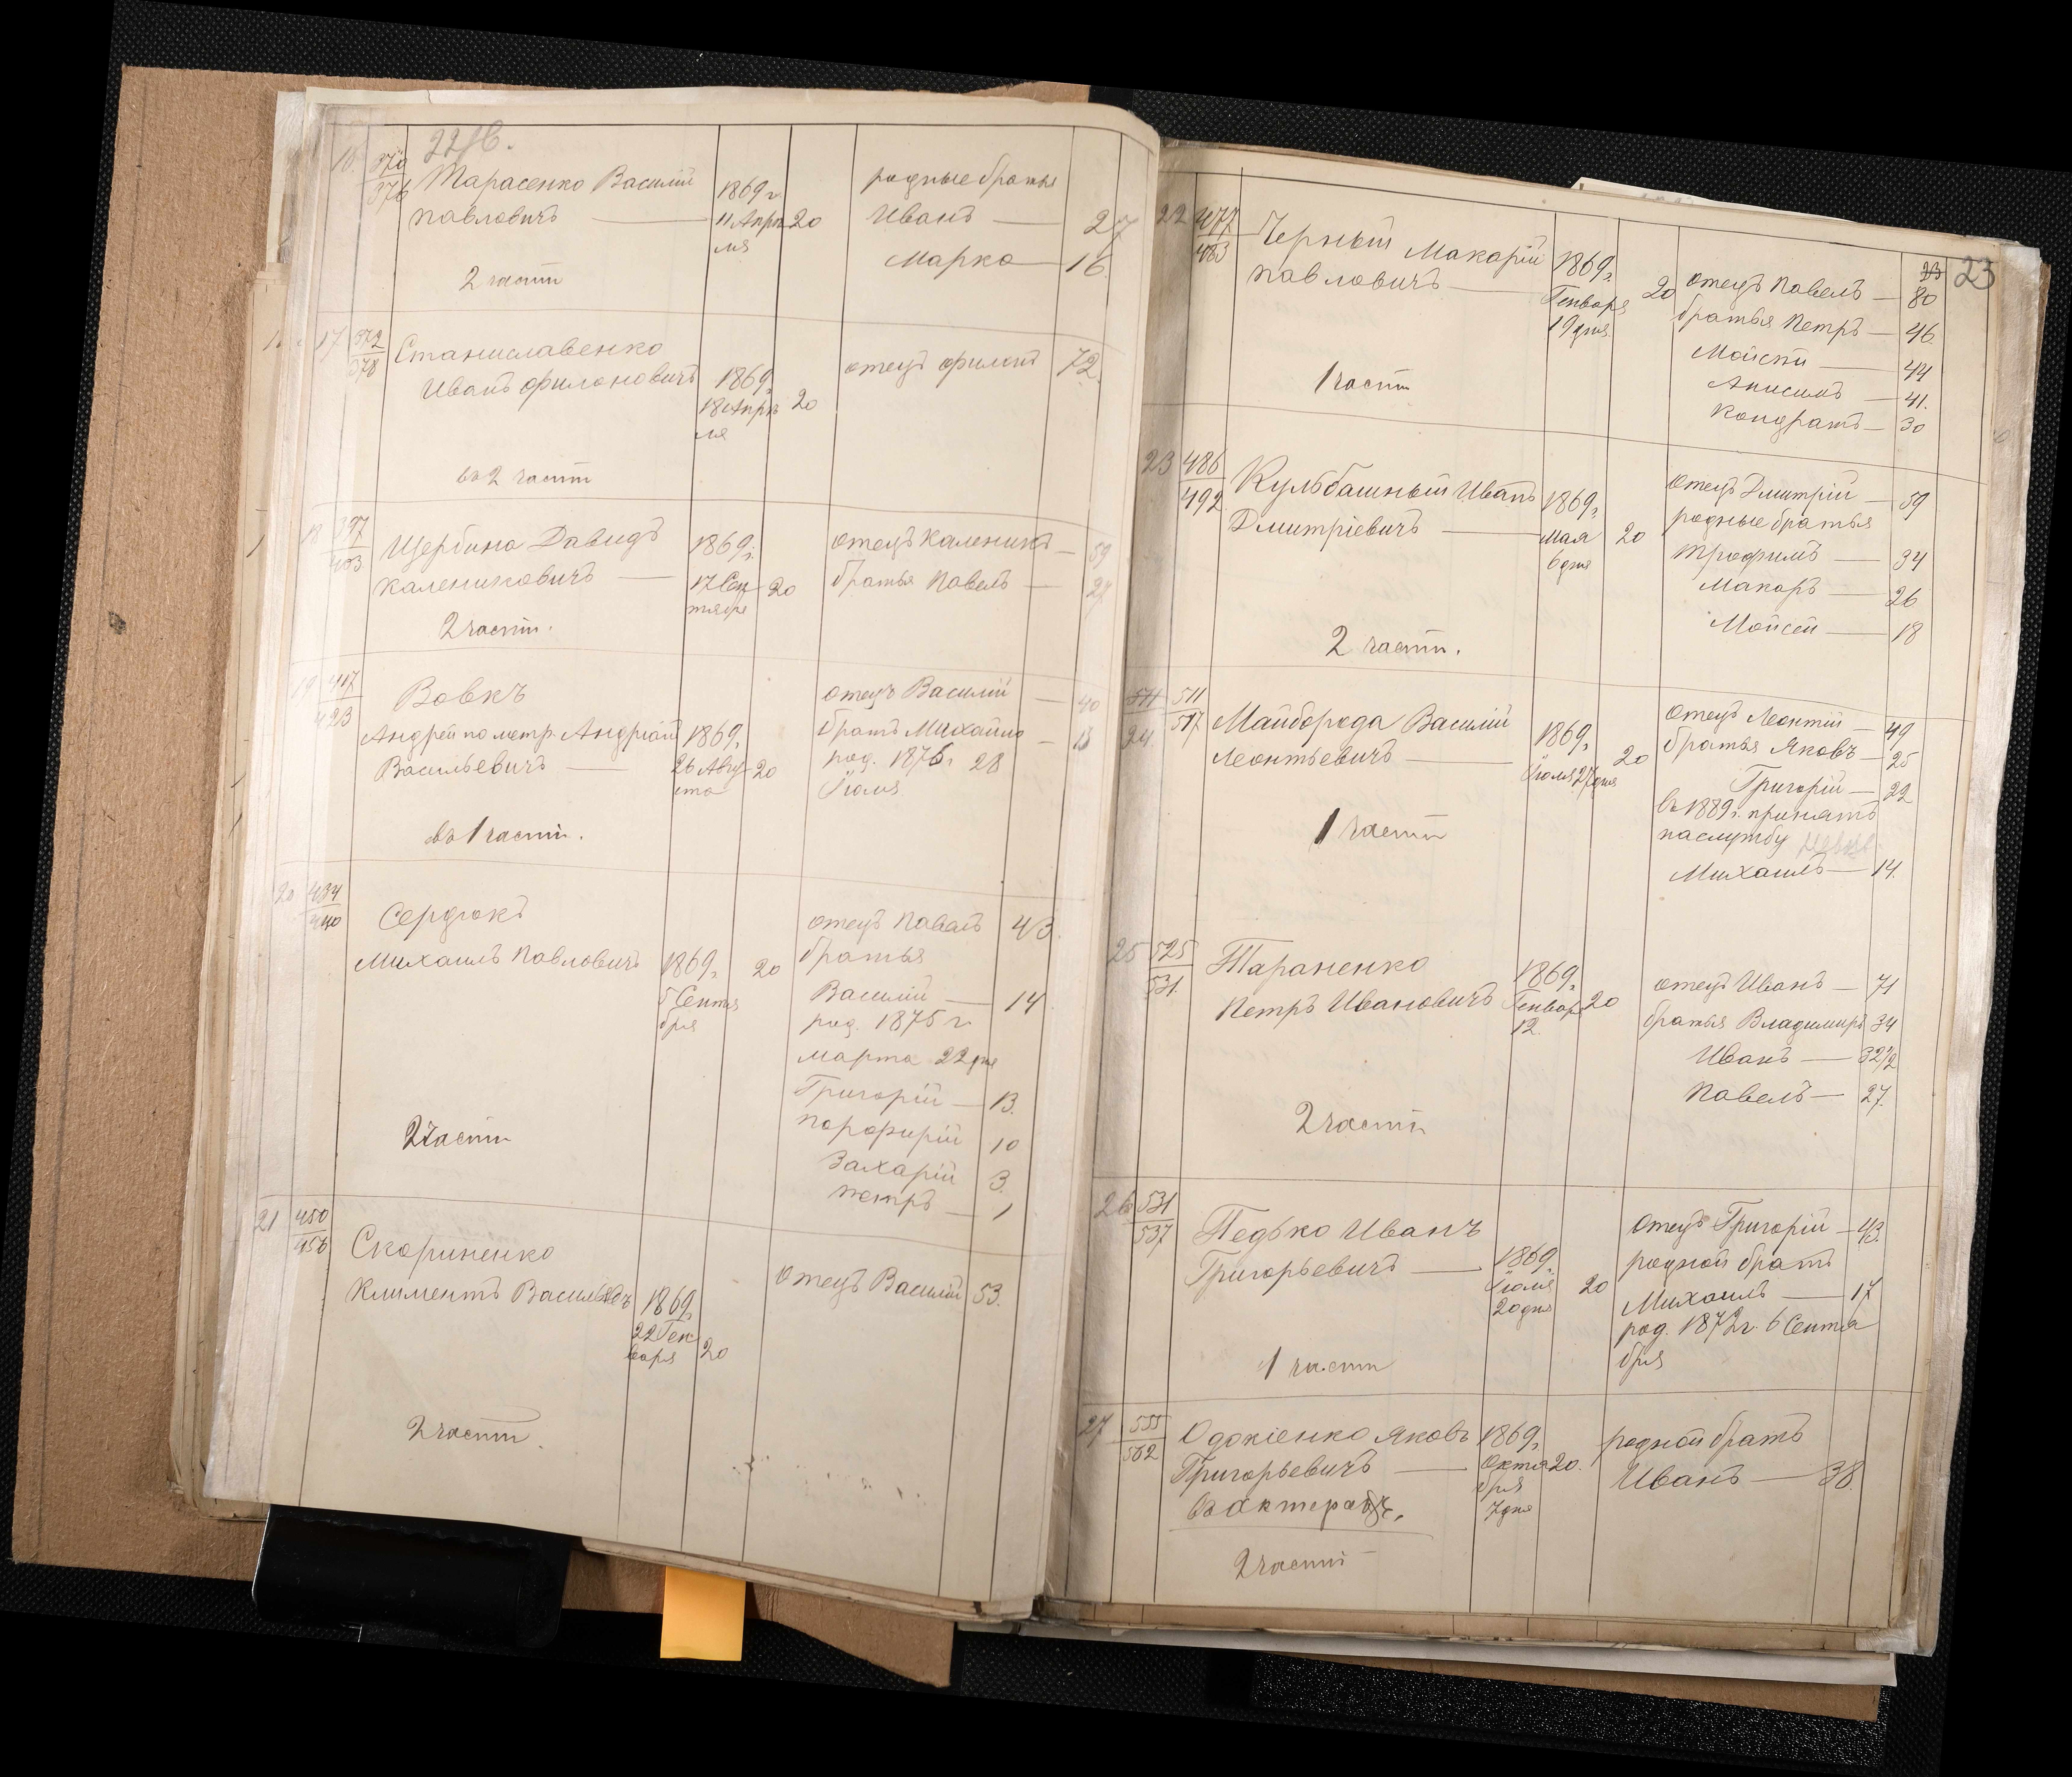 22 об.
16. 370 Тарасенко Василій 1869 г. родные братья
376 Павловичъ — 11 Апрѣ 20 Иванъ — 27
ля Марко — 16.
2 части
17 372 Станиславенко отецъ Филонъ 72.
378 Иванъ Филоновичъ 1869 г.
18 Апрѣ 20
ля
въ 2 части
18 397 Щербина Давидъ 1869 г. отецъ Каленикъ — 59
403 Калениковичъ — 17 Сен 20 братья Павелъ — 27
тября
2 части.
19 417 Вовкъ отецъ Василій — 40
423 Андрей по метр. Андріанъ 1869 г. братъ Михайло — 13
Васильевичъ — 26 Авгу 20 род. 1876 г. 28
ста Іюля
въ 1 части.
20 434 Сердюкъ отецъ Павелъ 43.
440 Михаилъ Павловичъ 1869 г. 20 братья
5 Сентя Василій — 14
бря род. 1875 г.
марта 22 дня
Григорій — 13.
2 части Порфирій 10
Захарій 3.
Петръ — 1
21 450 Скориненко
456 Климентъ Василь 1869 г. отецъ Василій 53.
22 Ген
варя 20
2 части.
23
22 477 Черный Макарій 1869 г. 20 отецъ Павелъ — 80
483 Павловичъ — Генваря братья Петръ — 46.
19 дня Мойсей — 44
1 части Анисимъ — 41.
Кондратъ — 30
23 486 Кульбашный Иванъ 1869 г. Отецъ Дмитрій — 59
492 Дмитріевичъ — Мая 20 родные братья
6 дня Трофимъ — 34
Макаръ — 26
2 части. Мойсей — 18
511 511 Майборода Василій 1869 г. Отецъ Леонтій — 49
24. 517 Леонтьевичъ — Іюля 27 дня 20 братья Яковъ — 25
Григорій — 22
1 части въ 1889 г. принятъ
на службу
Михаилъ — 14.
25 525 Тараненко 1869 г. отецъ Иванъ — 71
531. Петръ Ивановичъ Генвар 20 братья Владимиръ 34
12. Иванъ — 32 1/2
2 части Павелъ — 27.
26 531 Педько Иванъ Отецъ Григорій — 43.
537 Григорьевичъ — 1869 г. 20 родной братъ
Іюля Михаилъ — 17
20 дня род. 1872 г. 6 Сентя
1 части бря
27 555 Одокіенко Яковъ 1869 г. родной братъ
562 Григорьевичъ — Октя 20. Иванъ — 38.
бря
7 дня
2 части